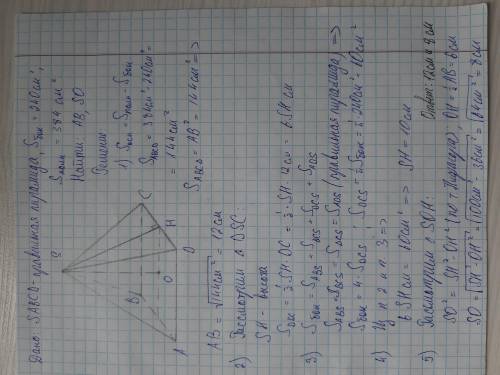 Дано: SABCD - правильная пирамида, Sбок = 240 см²,
Sполн = 384 см²
Найти: AB, SO
Решение
1) Sосн = Sполн - Sбок
SABCD = 384 см² - 240 см² =
= 144 см²
SABCD = AB² = 144 см² =>
S
B
C
H
A
O
D
AB = √144 см² = 12 см
2) Рассмотрим △ DSC:
SH - высота
SDSC = 1/2 · SH · DC = 1/2 · SH · 12 см = 6 SH см
3) Sбок = SABS + SBCS + SDCS + SADS
SABS = SBCS = SDCS = SADS (правильная пирамида) =>
Sбок = 4 · SDCS; SDCS = 1/4 Sбок = 1/4 · 240 см² = 60 см²
4) Из п 2 и п 3 =>
6 SH см = 60 см² => SH = 10 см
5) Рассмотрим △ SOH:
SO² = SH² - OH² (по т Пифагора); OH = 1/2 AB = 6 см
SO = √SH² - OH² = √100 см² - 36 см² = √64 см² = 8 см
Ответ: 12 см и 8 см